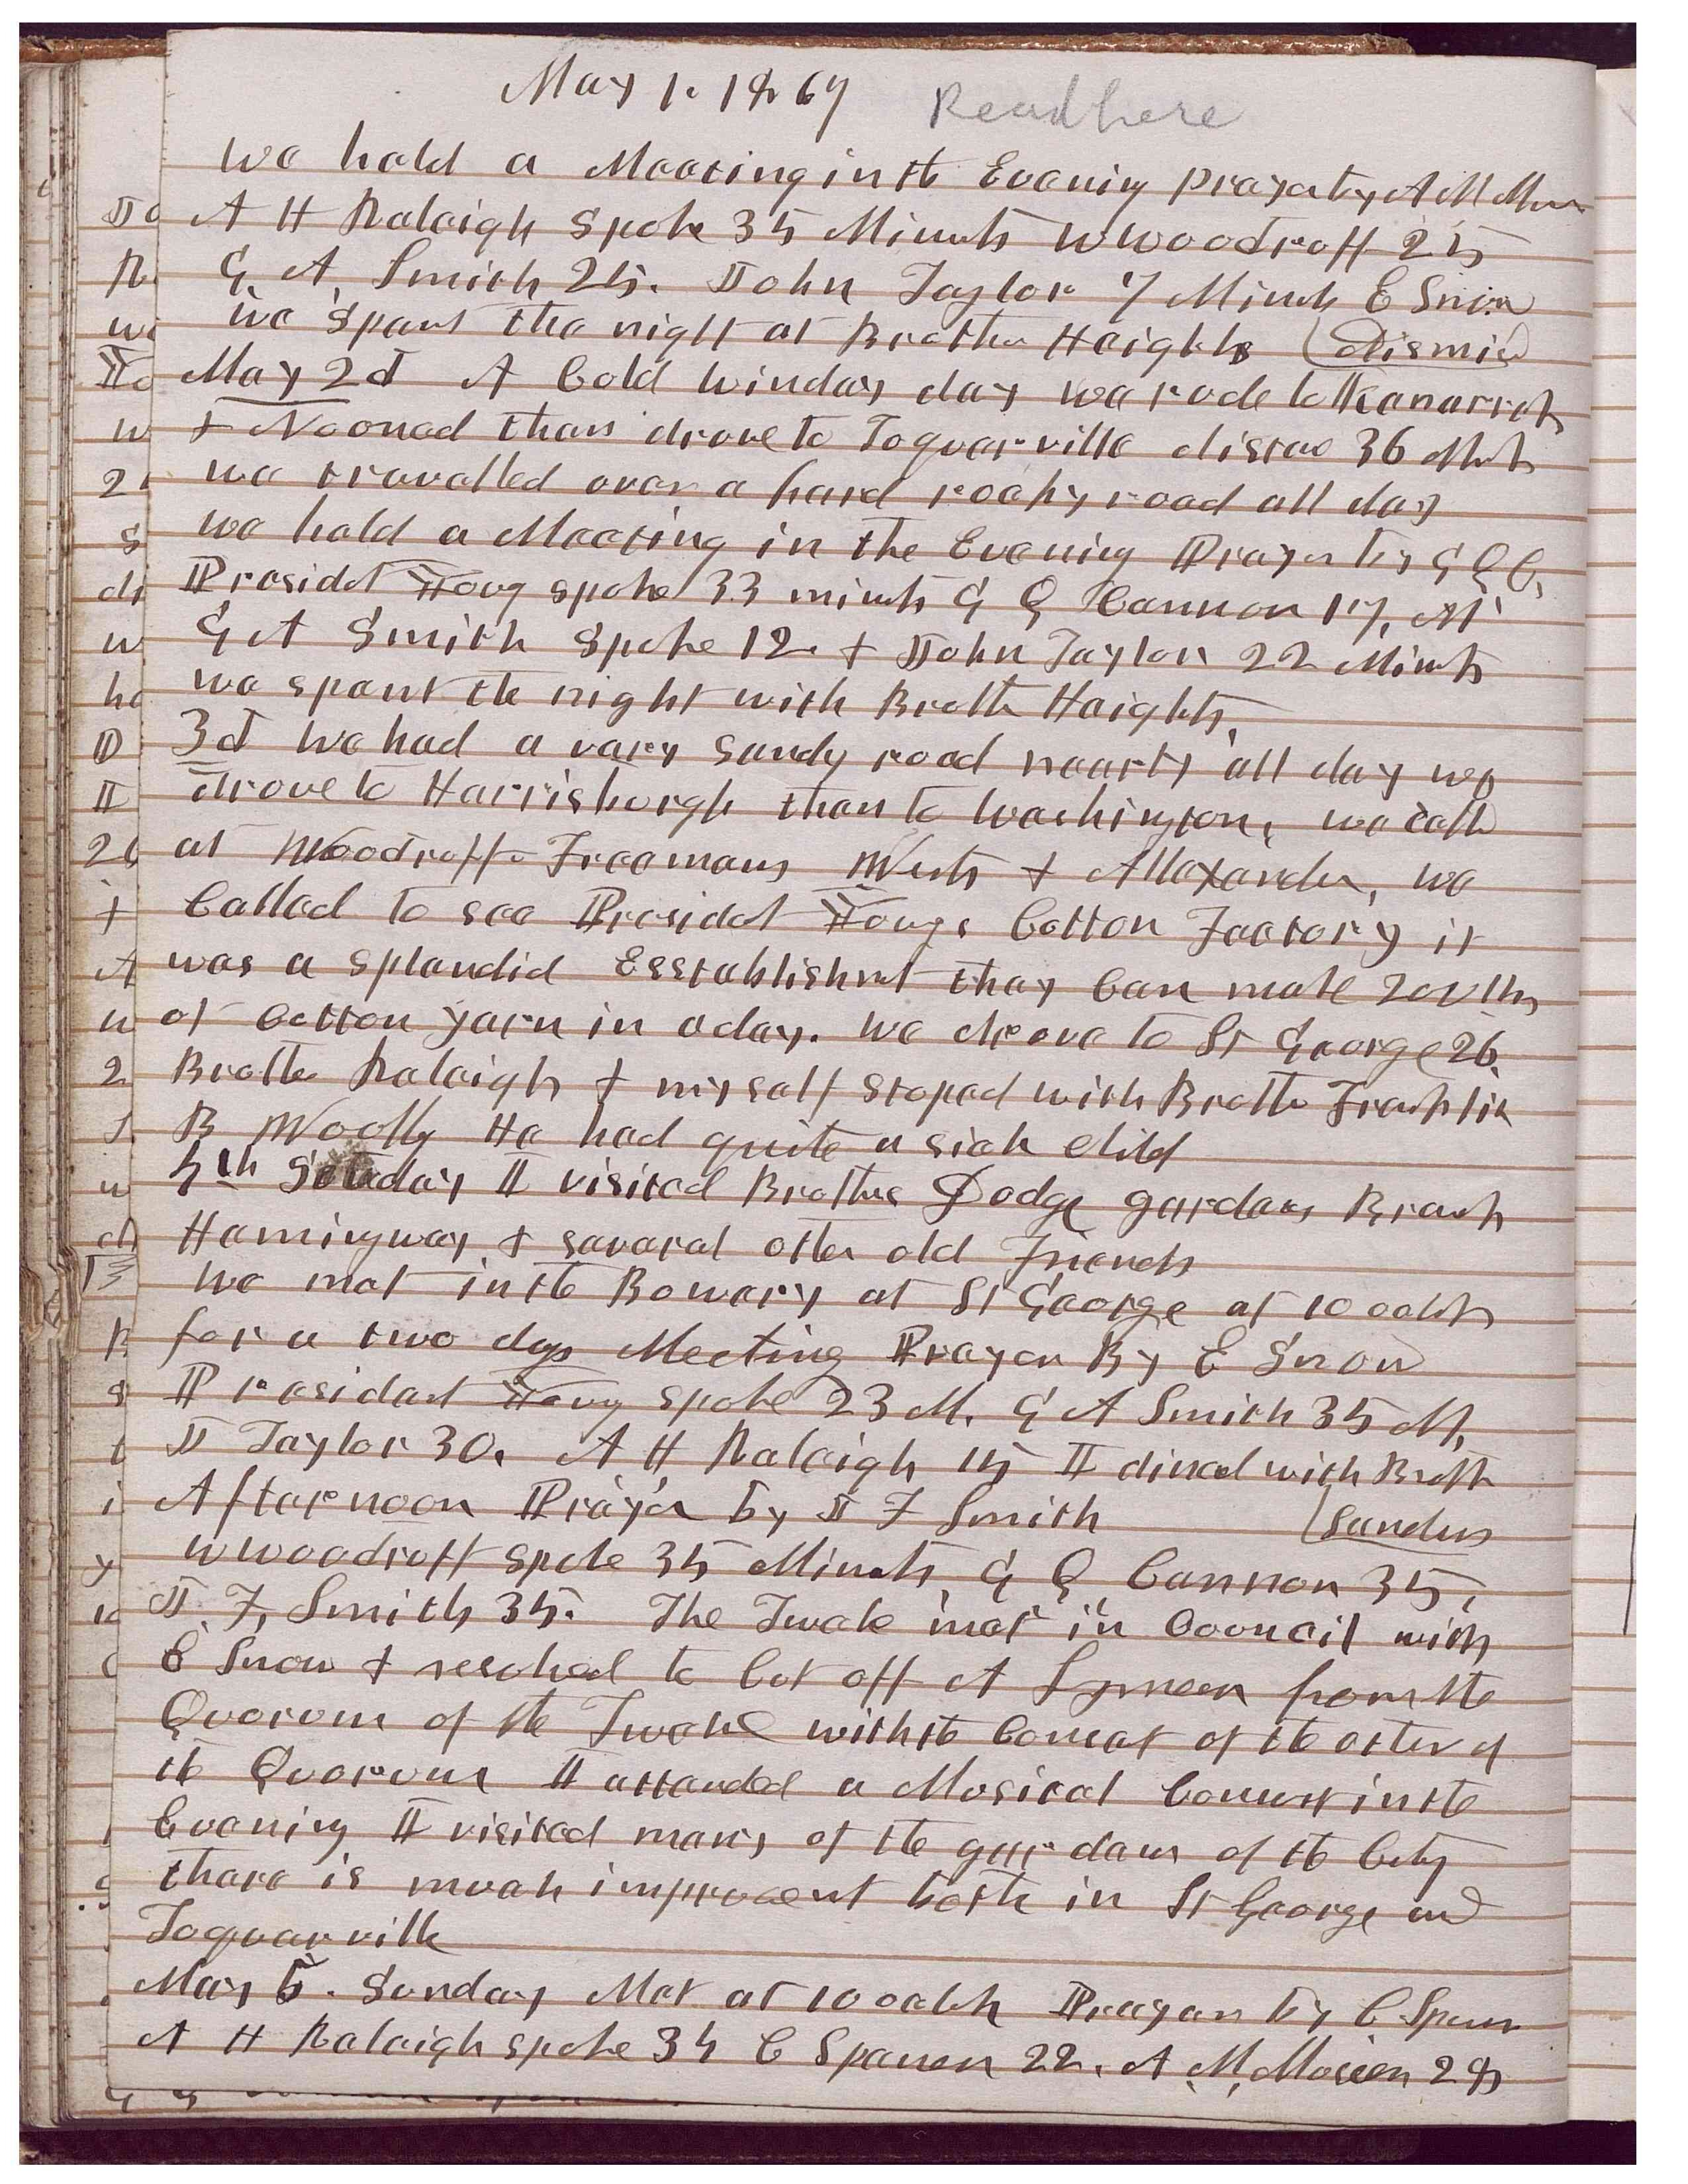 May 1. 1867 Read here
we held a Meeting in the Evening prayer by A M Mus
A H Raleigh Spoke 35 Minuts W Woodruff 25
G. A. Smith 25. John Taylor 7 Minuts E Snow
we Spent the night at Brother Heights (dismisd
May 2d A Cold winday day we rode to Kanarrah
& Nooned then drove to Toquerville distan 36 Miles
we travelled over a hard rocky road all day
we held a Meeting in the Evening Prayer by G Q C.
Presidet Young spoke 33 minuts G Q Cannon 17,
G A Smith Spoke 12. & John Taylor 22 Minuts
we spent the night with Brother Haights,
3d We had a very sandy road nearly all day we
drove to Harrisburgh then to Washington, we calld
at Woodruffs Freemans Wests & Allexander, we
Called to see Presidet Youngs Cotton Factory it
was a splendid Esstablishmt they Can make 200 lbs
of Cotton yarn in a day. We drove to St George 26.
Brother Raleigh & myself stoped with Brother Franklin
B Woolly He had quite a sick child
4th Saturday I visited Brothers Dodge gardens Branch
Hemingway & several other old Friends
We met in the Bowery at St George at 10 oclok
for a two days Meeting Prayer By E Snow
President Young spoke 23 M. G A Smith 35 M,
J Taylor 30. A H Raleigh 15 I dined with Broth
Afternoon Prayer by J F Smith (Sanders
W Woodruff spoke 35 Minuts G Q Cannon 35,
J. F. Smith 35. The Twele met in Council with
E Snow & resolved to Cut off A Lyman from the
Quorum of the Twelve with the Consent of the other of
the Quorum I attended a Musical Concert in the
Evening I visited many of the gardens of the City
there is much improvement both in St George and
Toquerville
May 5. Sunday Met at 10 oclok Prayer by C Spencer
A H Raleigh spoke 34 C Spencer 22. A M, Musser 28